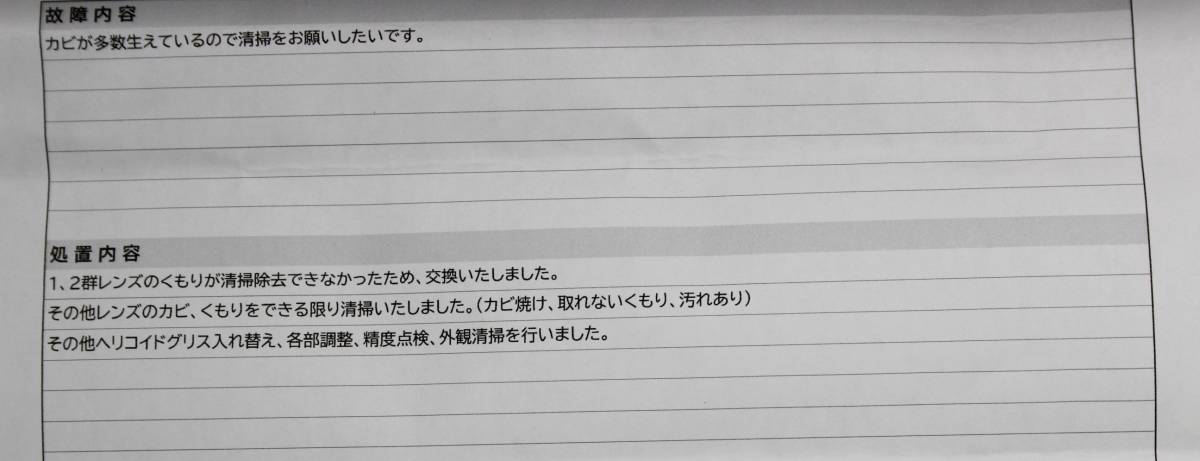 故障内容
カビが多数生えているので清掃をお願いしたいです。
処置内容
1、2群レンズのくもりが清掃除去できなかったため、交換いたしました。
その他レンズのカビ、くもりをできる限り清掃いたしました。(カビ焼け、取れないくもり、汚れあり)
その他ヘリコイドグリス入れ替え、各部調整、精度点検、外観清掃を行いました。